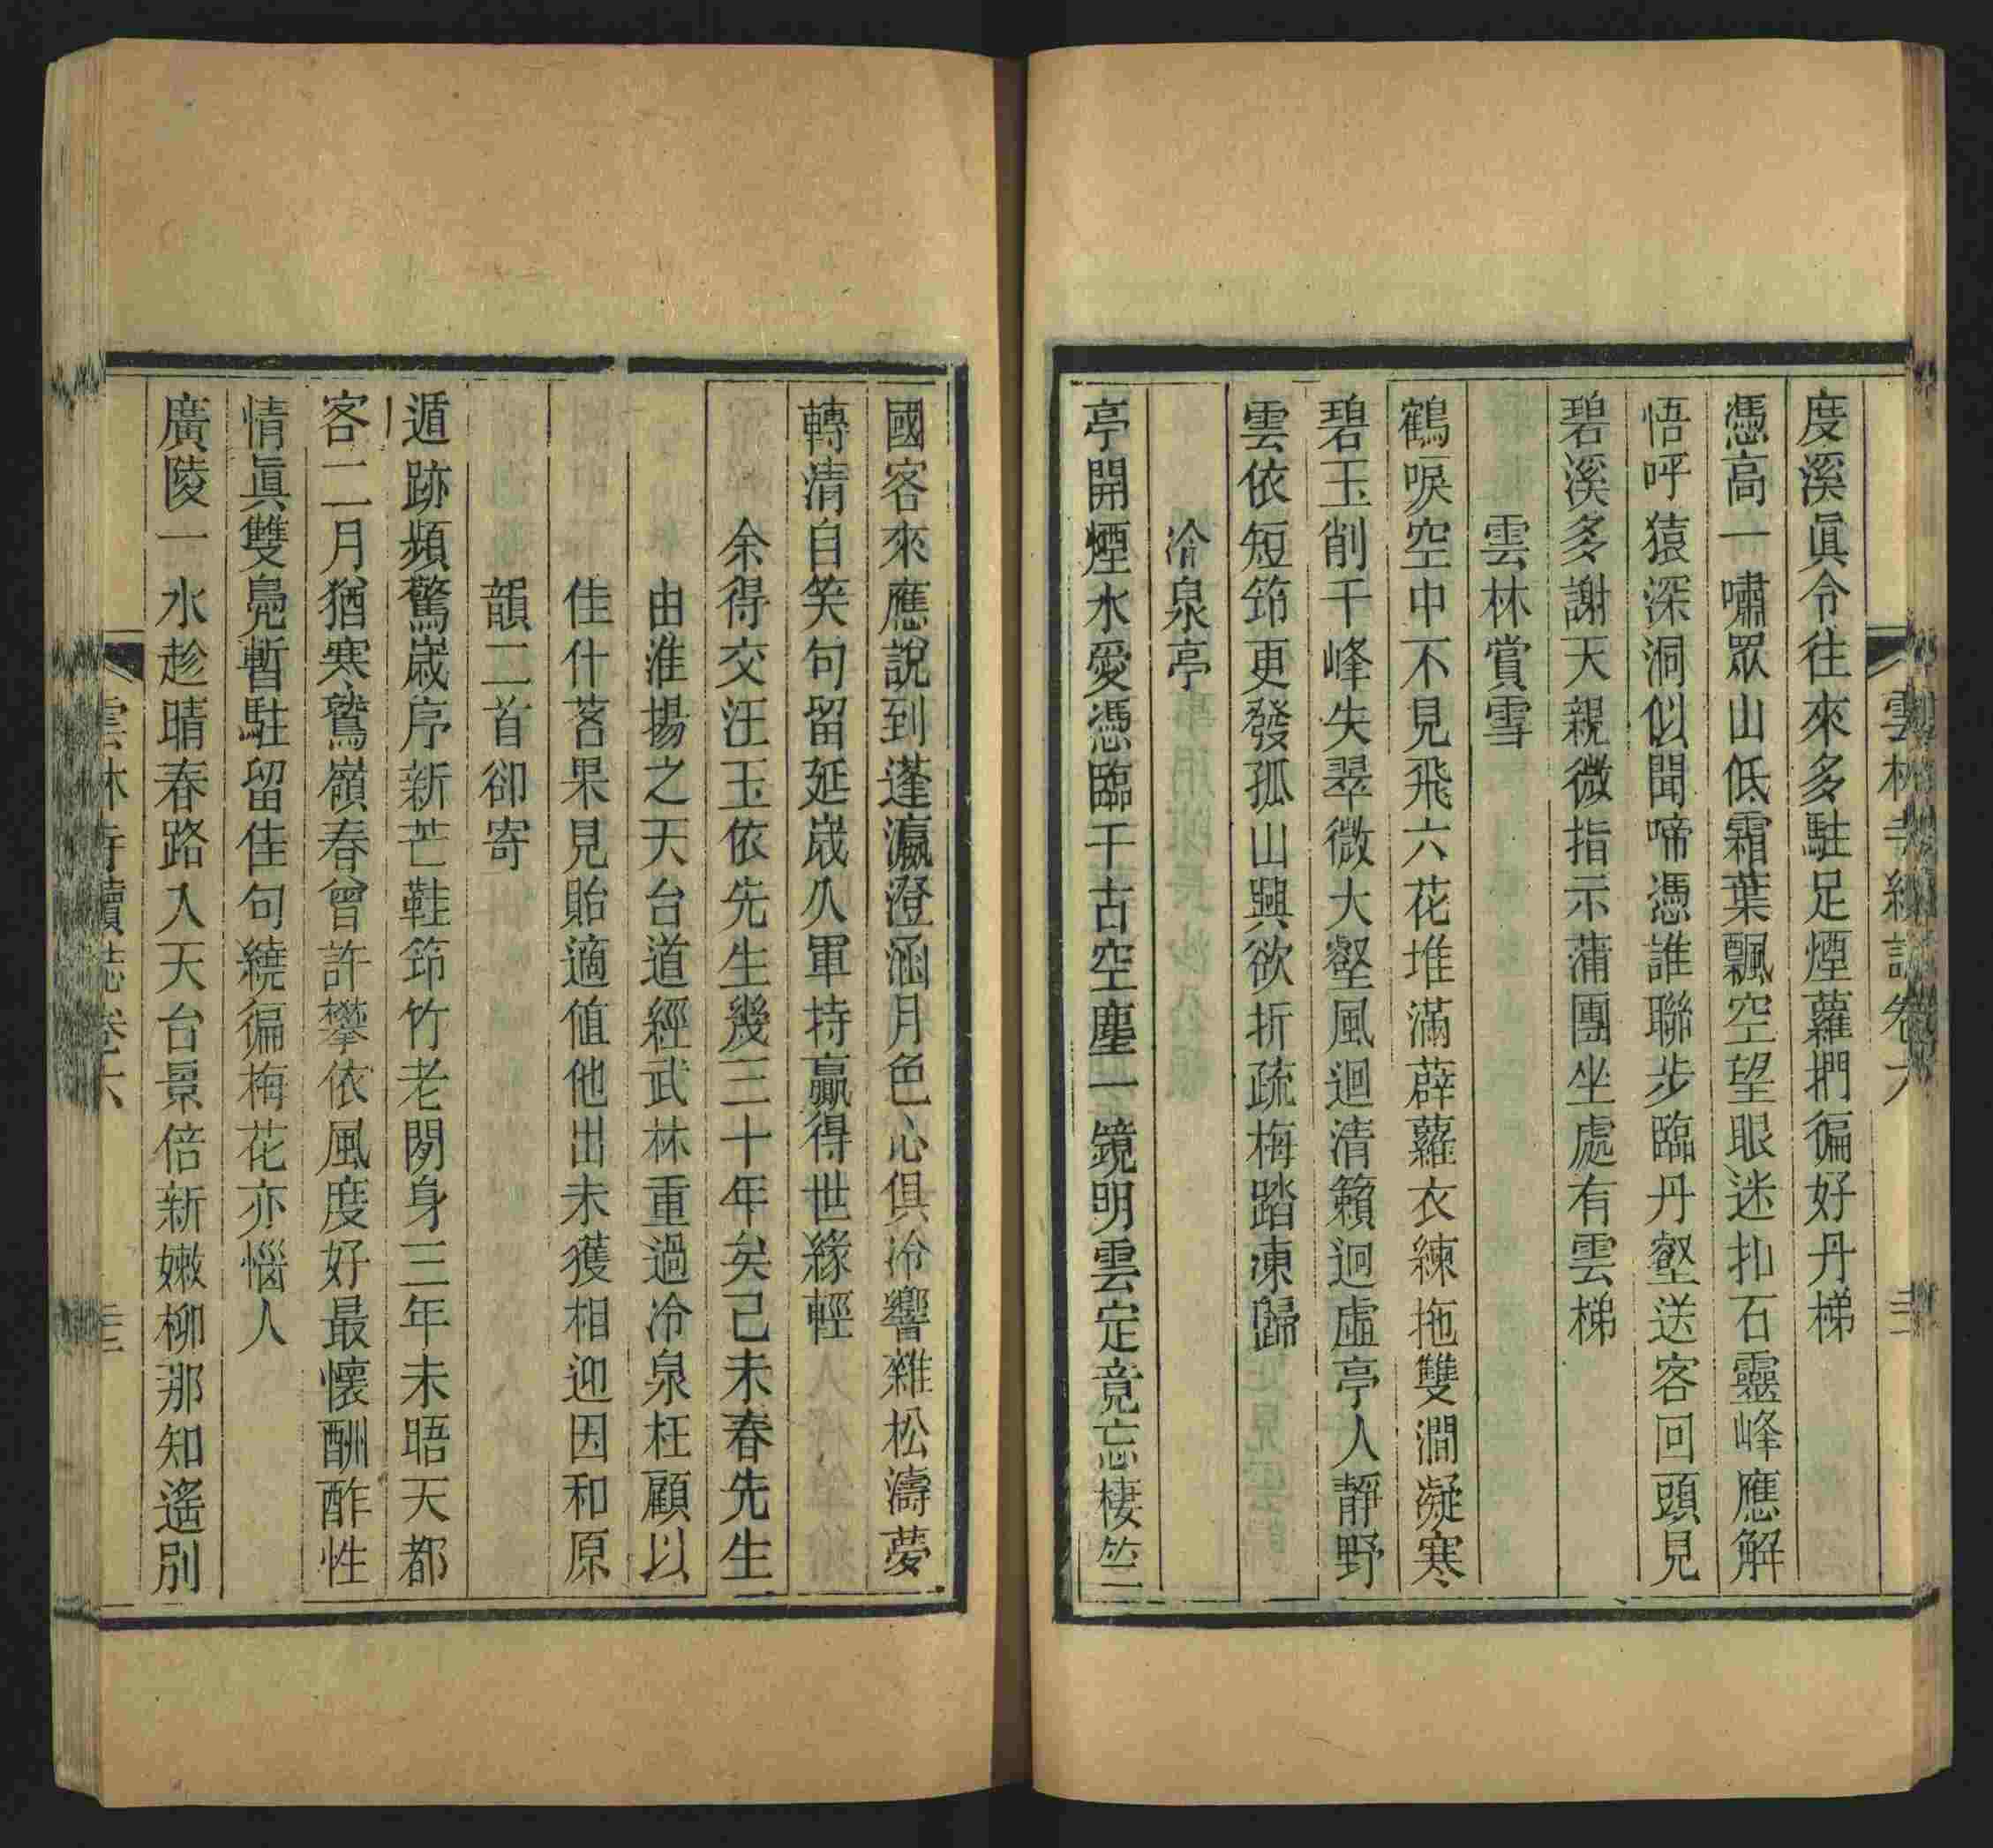 雲林寺續誌卷六
度溪眞令往來多駐足煙蘿捫徧好丹梯
憑高一嘯眾山低霜葉飄空望眼迷扣石靈峰應解
悟呼猿深洞似聞啼憑誰聯步臨丹壑送客回頭見
碧溪多謝天親微指示蒲團坐處有雲梯
雲林賞雪
鶴唳空中不見飛六花堆滿薜蘿衣練拖雙澗凝寒
碧玉削千峰失翠微大壑風迴清籟迥虛亭人靜野
雲依短筇更發孤山興欲折疏梅踏凍歸
冷泉亭
亭開煙水愛憑臨千古空塵一鏡明雲定竟忘棲竺
國客來應說到蓬瀛澄涵月色心俱冷響雜松濤夢
轉清自笑句留延歲久軍持贏得世緣輕
余得交汪玉依先生幾三十年矣己未春先生
由淮揚之天台道經武林重過冷泉枉顧以
佳什茗果見貽適値他出未獲相迎因和原
韻二首卻寄
遁跡頻驚歲序新芒鞋筇竹老閒身三年未晤天都
客二月猶寒鷲嶺春曾許攀依風度好最懷酬酢性
情眞雙鳧暫駐留佳句繞徧梅花亦惱人
廣陵一水趁晴春路入天台景倍新嫩柳那知遙別
雲林寺續誌卷六